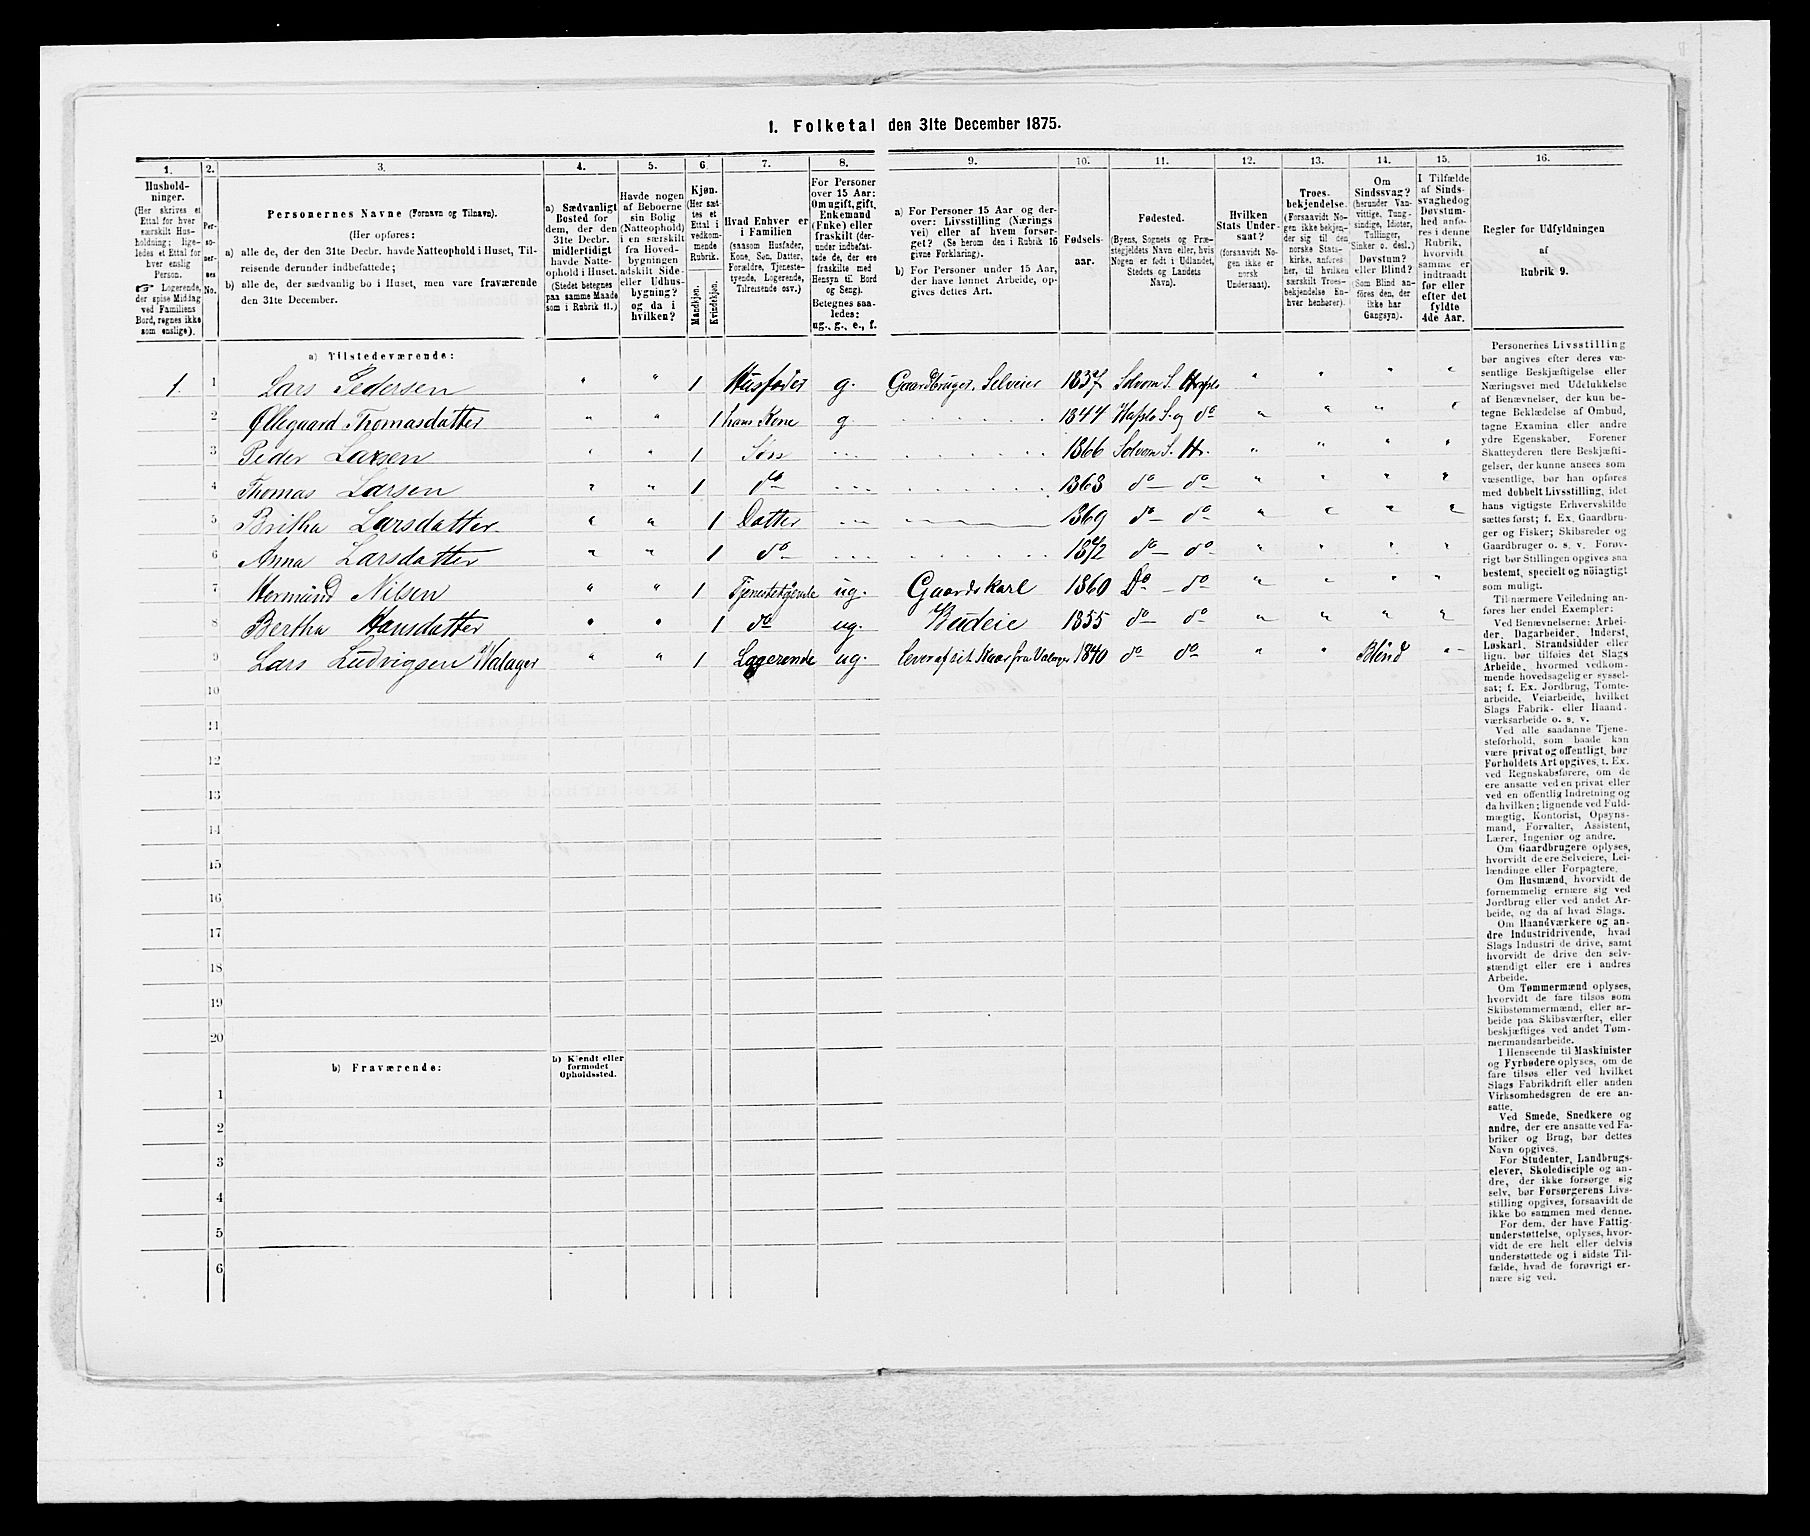 1. Folketal den 31te December 1875.
1. 2. 3. 4. 5. 6. 7. 8. 9. 10. 11. 12. 13. 14. 15. 16.
Hushold-
ninger.
(Her skrives et
Ettal for hver
særskilt Hus-
holdning; lige-
ledes et Ettal for
hver enslig
Person.
Logerende,
der spise Middag
ved Familiens
Bord, regnes ikke
som enslige).
Per-
so-
ner-
nes
No.
Personernes Navne (Fornavn og Tilnavn).
(Her opføres:
a) alle de, der den 31te Decbr. havde Natteophold i Huset, Til-
reisende derunder indbefattede;
b) alle de, der sædvanlig bo i Huset, men vare fraværende
den 31te December.
a) Sædvanligt
Bosted for
dem, der den
31te Decbr.
midlertidigt
havde Natte-
ophold i Huset.
(Stedet betegnes
paa samme Maade
som i Rubrik 11.)
Havde nogen
af Beboerne
sin Bolig
(Natteophold)
i en særskilt
fra Hoved-
bygningen
adskilt Side-
eller Udhus-
bygning?
og da i
hvilken?
Kjøn.
(Her sæt-
tes et
Ettal i
vedkom-
mende
Rubrik.
Mandkjøn.
Kvindekjøn.
Hvad Enhver er
i Familien
(saasom Husfader,
Kone, Søn, Datter,
Forældre, Tjeneste-
tyende, Logerende,
Tilreisende osv.)
For Personer
over 15 Aar:
Om ugift, gift,
Enkemand
(Enke) eller
fraskilt (der-
under indbefat-
tede de, der ere
fraskilte med
Hensyn til Bord
og Seng).
Betegnes saa-
ledes:
ug., g., e., f.
a) For Personer 15 Aar og der-
over: Livsstilling (Nærings
vei) eller af hvem forsør-
get? (Se herom den i Rubrik 16
givne Forklaring).
b) For Personer under 15 Aar,
der have lønnet Arbeide, op-
gives dettes Art.
Fødsels-
aar.
Fødested.
(Byens, Sognets og Præ-
stegjeldets Navn eller, hvis
Nogen er født i Udlandet,
Stedets og Landets
Navn).
Hvilken
Stats Under-
saat?
(forsaavidt No-
gen ikke er
norsk
Undersaat).
Troes-
bekjendelse.
(Forsaavidt No-
gen ikke bekjen-
der sig til den
norske Stats-
kirke, anføres
her, til hvilken
særskilt Troes-
bekjendelse En-
hver henhører).
Om
Sindssvag?
(herunder Van-
vittige, Tung-
sindige, Idioter,
Tullinger,
Sinker o. desl.)
Døvstum?
eller Blind?
(Som Blind an-
føres den, der
ikke har
Gangsyn).
I Tilfælde
af Sinds-
svaghed og
Døvstum-
hed anfø-
res i denne
Rubrik,
hvorvidt
samme er
indtraadt
før eller
efter det
fyldte
4de Aar.
Regler for Udfyldningen
af
Rubrik 9.
a) Tilstedeværende:
1. 1 Lars Pedersen " " 1 Husfader g. Gaardbruger, Selveier 1837 Solvorn S. Hafslo " " " "
2 Øllegaard Thomasdatter " " 1 hans Kone g 1844 Hafslo S. og do " " " "
3 Peder Larsen " " 1 Søn 1866 Solvorn S. H. " " " "
4 Thomas Larsen " " 1 do 1863 do do " " " "
5 Britha Larsdatter " " 1 Datter 1869 do do " " " "
6 Anna Larsdatter " " 1 do 1872 do do " " " "
7 Hermund Nilsen " " 1 Tjenestetyende ug. Gaardskarl 1860 Do do " " " "
8 Bertha Hansdatter " " 1 do ug. Budeie 1855 do do " " " "
9 Lars Ludvigsen Walager " " 1 Logerende ug. lever af sit Kaar fra Valager 1840 do do " " Blind "
10
11
12
13
14
15
16
17
18
19
20
b) Fraværende:
b) Kjendt eller
formodet
Opholdssted.
1
2
3
4
5
6
Personernes Livsstilling
bør angives efter deres væ-
sentlige Beskjæftigelse eller
Næringsvei med Udelukkelse
af Benævnelser, der kun be-
tegne Beklædelse af Ombud,
tagne Examina eller andre
ydre Egenskaber. Forener
Skatteyderen flere Beskjæfti-
gelser, der kunne ansees som
væsentlige, bør han opføres
med dobbelt Livsstilling, idet
hans vigtigste Erhvervskilde
sættes først; f. Ex. Gaardbru-
ger og Fisker; Skibsreder og
Gaardbruger o. s. v. Forøv-
rigt bør Stillingen opgives saa
bestemt, specielt og nöiagtigt
som muligt.
Til nærmere Veiledning an-
føres her endel Exempler:
Ved Benævnelserne: Arbei-
der, Dagarbeider, Inderst,
Løskarl, Strandsidder eller
lign. bør tilføies det Slags
Arbeide, hvormed vedkom-
mende hovedsagelig er syssel-
sat; f. Ex. Jordbrug, Tomte-
arbeide, Veiarbeide, hvilket
Slags Fabrik- eller Haand-
værksarbeide o. s. v.
Ved alle saadanne Tjene-
steforhold, som baade kan
være privat og offentligt, bør
Forholdets Art opgives, t. Ex.
ved Regnskabsførere, om de
ere ansatte ved en privat eller
ved en offentlig Indretning og
da hvilken; lignende ved Fuld-
mægtig, Kontorist, Opsyns-
mand, Forvalter, Assistent,
Lærer, Ingeniør og andre.
Om Gaardbrugere oplyses,
hvorvidt de ere Selveiere, Lei-
lændinge eller Forpagtere.
Om Husmænd, hvorvidt de
fornemmelig ernære sig ved
Jordbrug eller ved andet Ar-
beide, og da af hvad Slags.
Om Haandværkere og an-
dre Industridrivende, hvad
Slags Industri de drive, samt
hvorvidt de drive den selv-
stændigt eller ere i andres
Arbeide.
Om Tømmermænd oplyses,
hvorvidt de fare tilsøs som
Skibstømmermænd, eller ar-
beide paa Skibsværfter, eller
beskjæftiges ved andet Tøm-
mermandsarbeide.
I Henseende til Maskinister
og Fyrbødere oplyses, om de
fare tilsøs eller ved hvilket
Slags Fabrikdrift eller anden
Virksomhedsgren de ere an-
satte.
Ved Smede, Snedkere og
andre, der ere ansatte ved Fa-
briker og Brug, bør dettes
Navn opgives.
For Studenter, Landbrugs-
elever, Skoledisciple og an-
dre, der ikke forsørge sig
selv, bør Forsørgerens Livs-
stilling opgives, forsaavidt de
ikke bo sammen med denne.
For dem, der have Fattig-
understøttelse, oplyses, hvor-
vidt de ere helt eller delvis
understøttede og i sidste Til-
fælde, hvad de forøvrigt er-
nære sig ved.